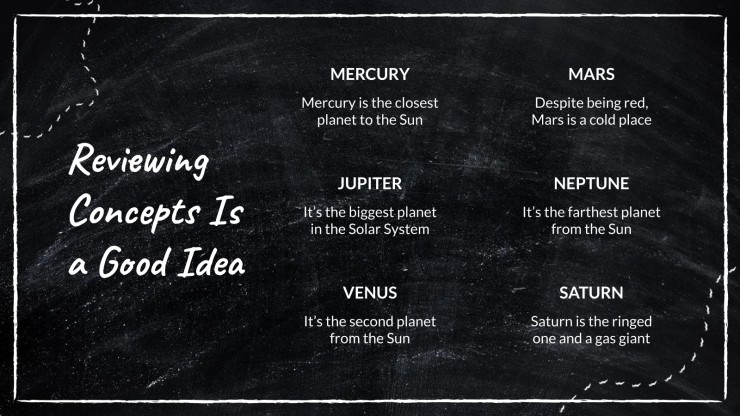 Reviewing
Concepts Is
a Good Idea
MERCURY
Mercury is the closest
planet to the Sun
MARS
Despite being red,
Mars is a cold place
JUPITER
It's the biggest planet
in the Solar System
NEPTUNE
It's the farthest planet
from the Sun
VENUS
It's the second planet
from the Sun
SATURN
Saturn is the ringed
one and a gas giant